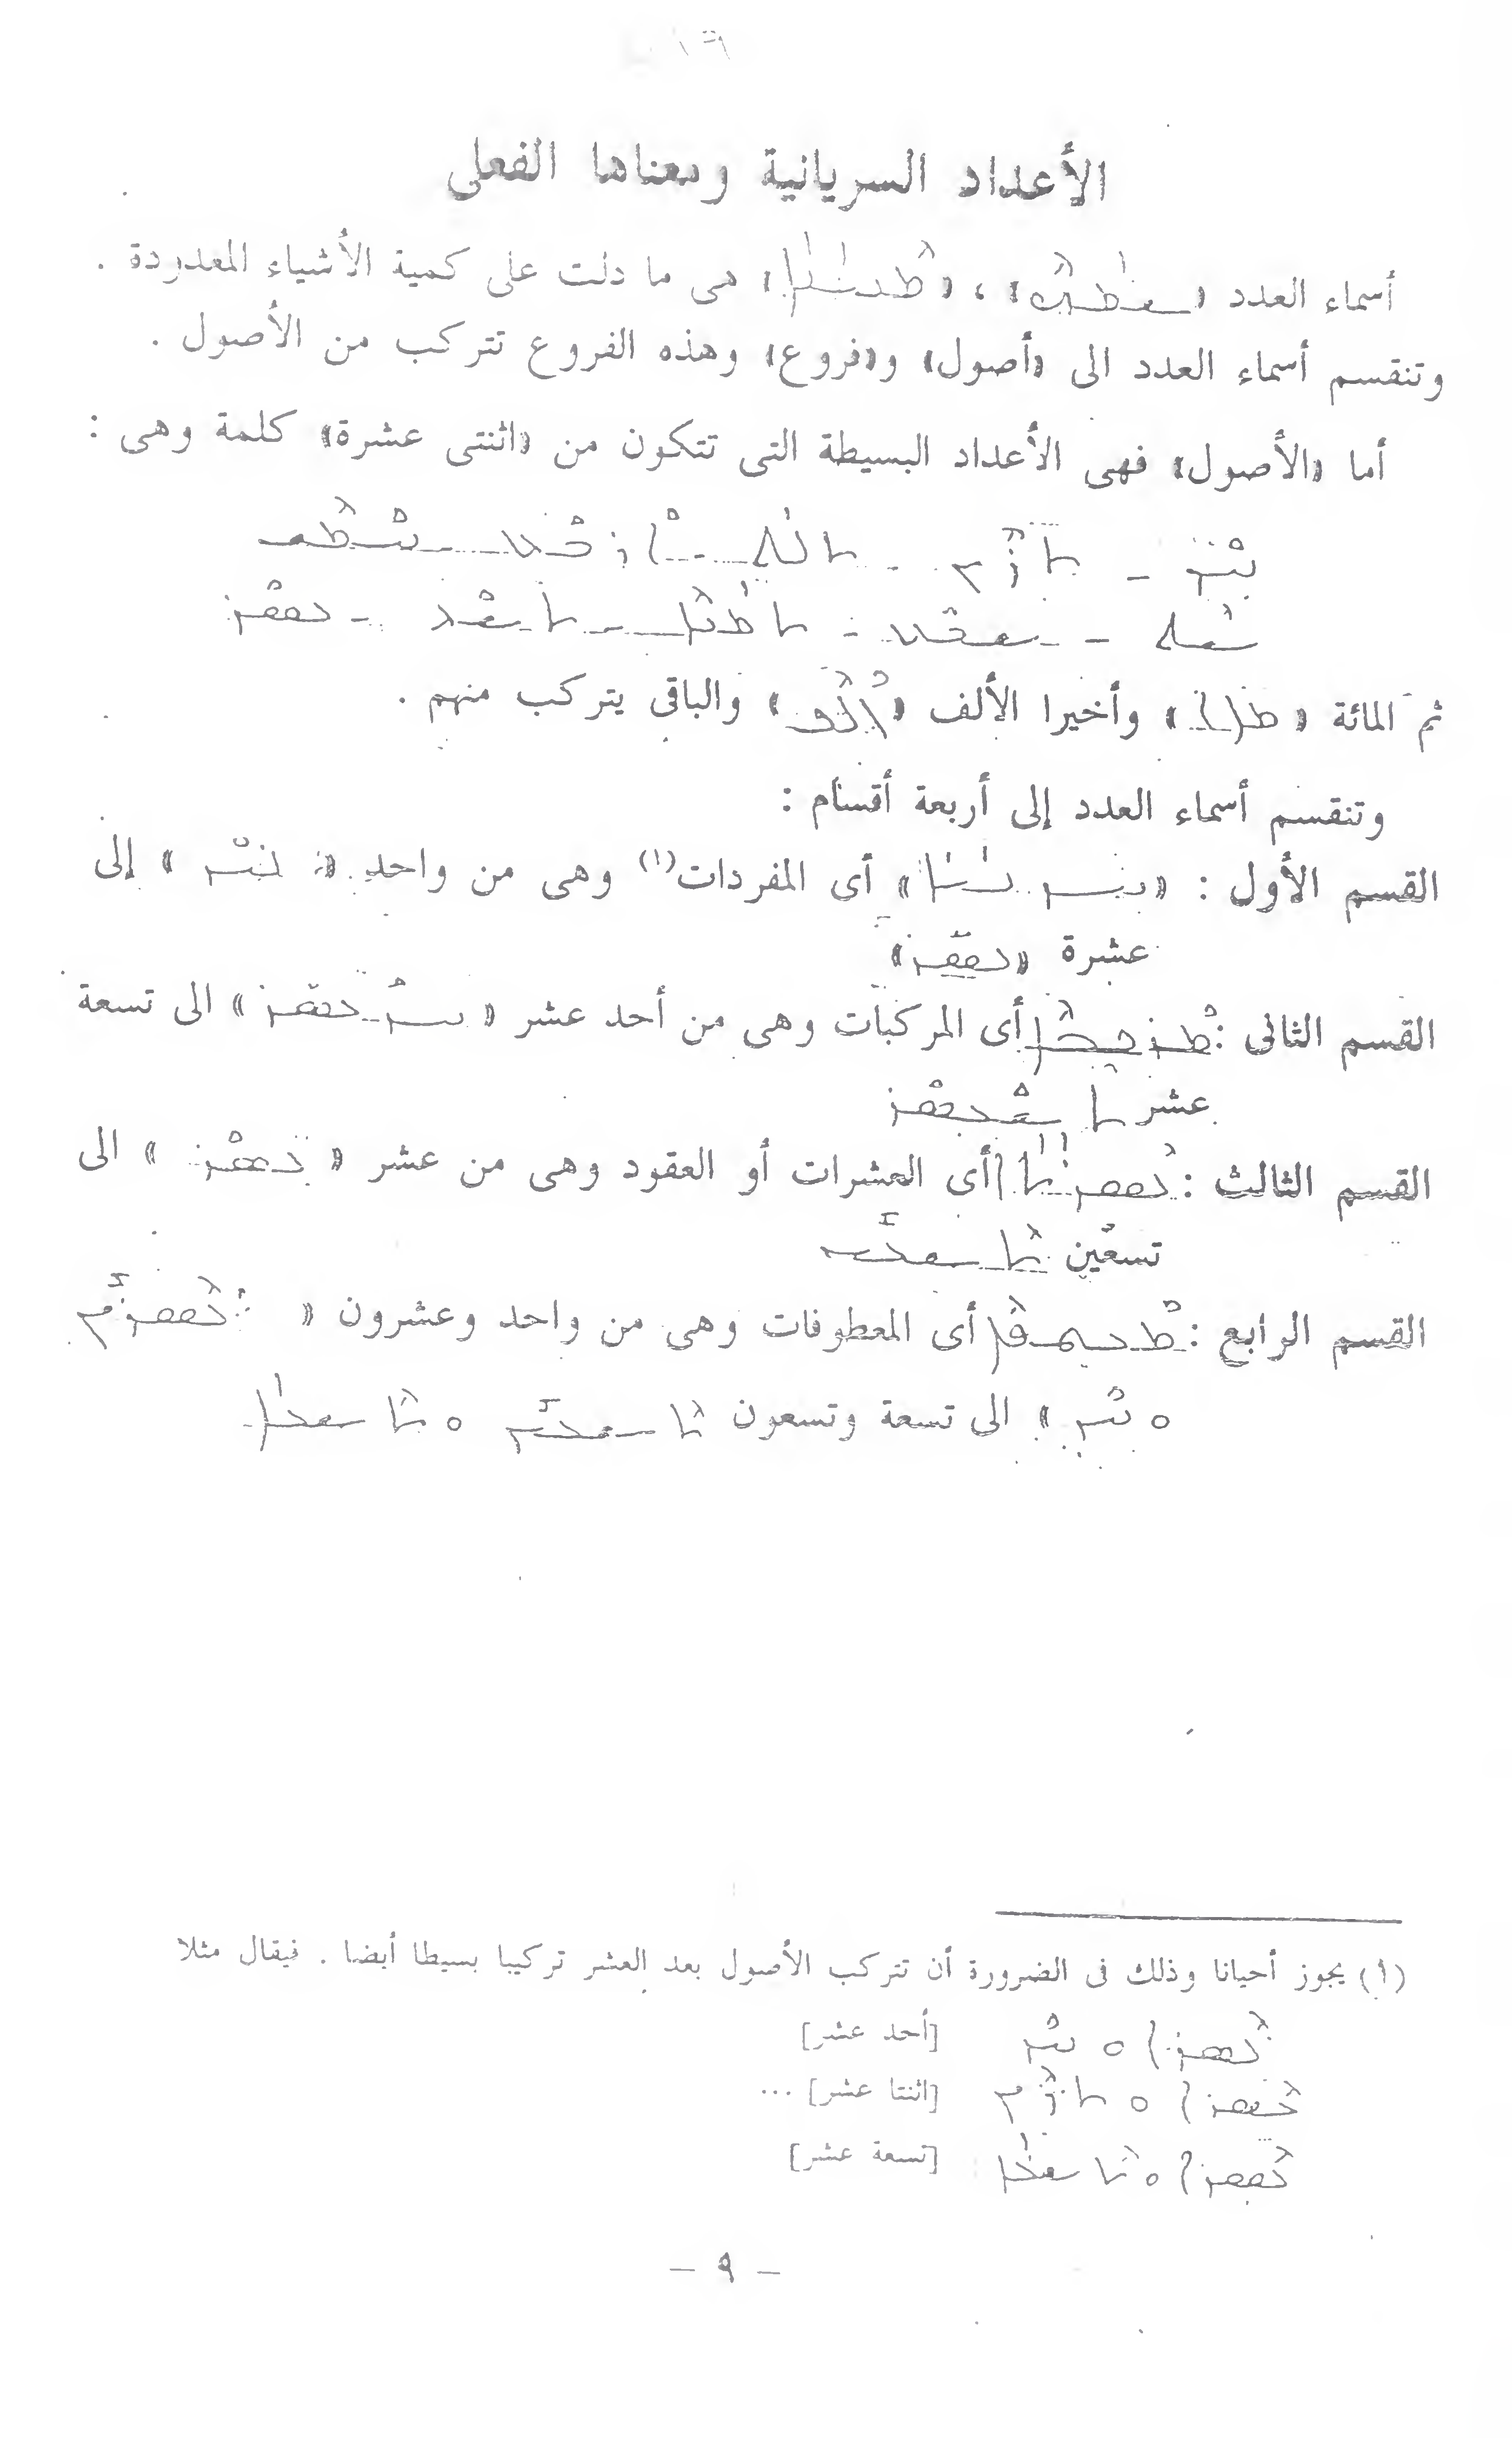 الأعداد السريانية ومعناها الفعلى
أسماء العدد « » ، « » هى ما دلت على كمية الأشياء المعدودة .
وتنقسم أسماء العدد الى «أصول» و«فروع» وهذه الفروع تتركب من الأصول .
أما «الأصول» فهى الأعداد البسيطة التى تتكون من «اثنتى عشرة» كلمة وهى :
ܚܰܕ - ܬܪܶܝܢ - ܬܠܳܬ - ܐܰܪܒܰܥ - ܚܰܡܶܫ
ܫܶܬ - ܫܒܰܥ - ܬܡܳܢܶܐ - ܬܫܰܥ - ܥܣܰܪ
ثم المائة « ܡܐܐ » وأخيرا الألف «ܐܰܠܶܦ» والباقى يتركب منهم .
وتنقسم أسماء العدد إلى أربعة أقسام :
القسم الأول : « » أى المفردات(١) وهى من واحد « ܚܰܕ » إلى
عشرة «ܥܣܰܪ»
القسم الثانى : أى المركبات وهى من أحد عشر « ܚܕܰܥܣܰܪ » الى تسعة
عشر ܬܫܰܥܣܰܪ
القسم الثالث : أى العشرات أو العقود وهى من عشر « ܥܣܰܪ » الى
تسعين ܬܶܫܥܝܢ
القسم الرابع : أى المعطوفات وهى من واحد وعشرون « ܥܶܣܪܝܢ
ܘܚܰܕ » الى تسعة وتسعون ܬܶܫܥܝܢ ܘܬܶܫܥܳܐ
(١) يجوز أحيانا وذلك فى الضرورة أن تتركب الأصول بعد العشر تركيبا بسيطا أيضا . فيقال مثلا
ܥܶܣܪܐ ܘܚܰܕ [أحد عشر]
ܥܶܣܪܐ ܘܬܪܶܝܢ [اثنتا عشر] ...
ܥܶܣܪܐ ܘܬܶܫܥܳܐ [تسعة عشر]
– ٩ –